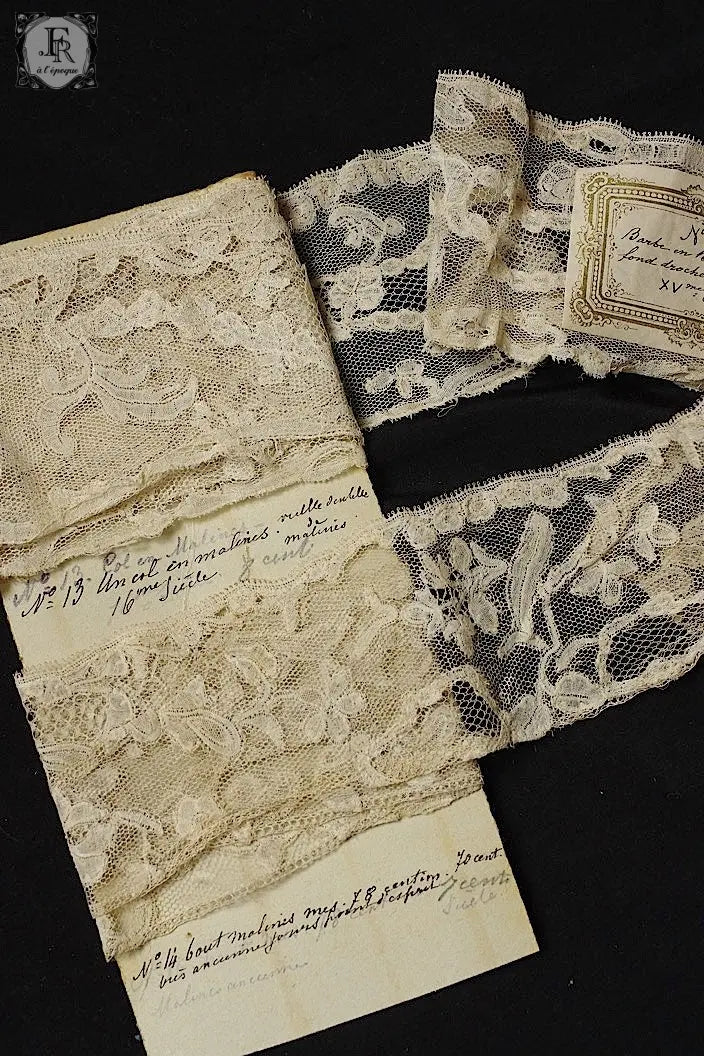 FR
à l'époque
Nº
Barbe en
fond droche
XVme
Nº 13. Col en Malines
Nº 13 Un col en malines. vieille dentelle
de malines.
16me Siècle
Nº 14 bout malines mes. 78 centim. 70 cent.
très ancienne jours point d'esprit.
7 cent
Siècle
Malines ancienne